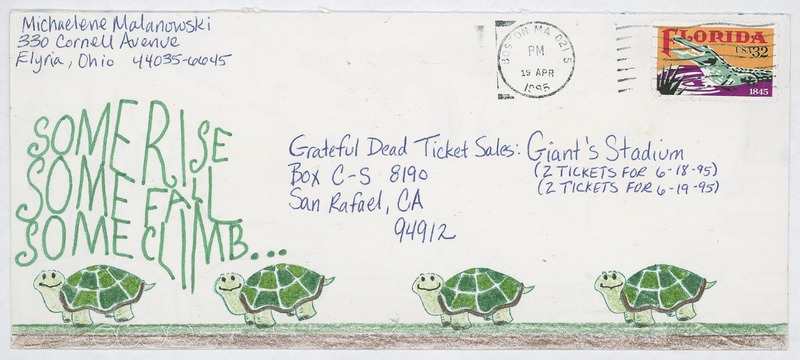 Michaelene Malanowski
330 Cornell Avenue
Elyria, Ohio 44035-6645
BOSTON MA 021 5
PM
19 APR
1995
FLORIDA
USA 32
1845
SOME RISE
SOME FALL
SOME CLIMB...
Grateful Dead Ticket Sales: Giant's Stadium
(2 TICKETS FOR 6-18-95)
Box C-S 8190
(2 TICKETS FOR 6-19-95)
San Rafael, CA
94912